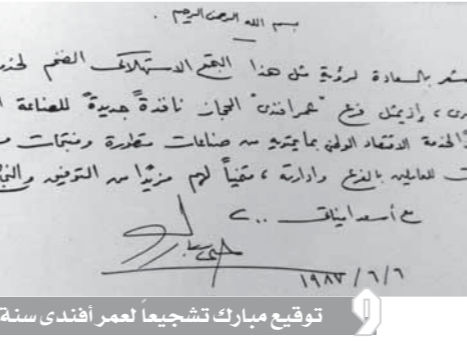 بسم الله الرحمن الرحيم .
بالسعادة لرؤية مثل هذا البقع الاستهلاكى الضخم
، وإذ يمثل فرع "عمر افندى" الحجاز نافذةً جديدةً للصناعة
والخدمة الاقتصاد الوطنى بما يحتويه من صناعات متطورة ومنتجات
للعاملين بالفرع وادارته ، متمنياً لهم مزيدًا من التوفيق
مع أسعد امنياتى ..
حسنى مبارك
١٩٨٧/٦/٦
توقيع مبارك تشجيعاً لعمر أفندى سنة